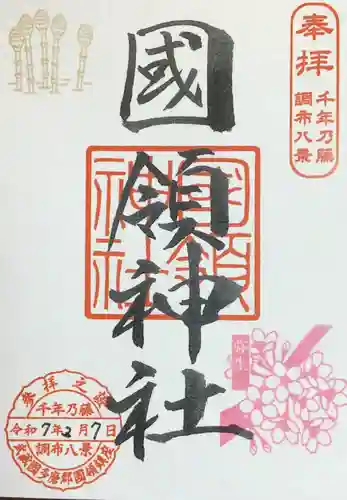 奉拝
千年乃藤
調布八景
國領神社
國領神社
弥生
参拝之證
千年乃藤
令和7年2月7日
調布八景
武蔵國多磨郡國領鎮座